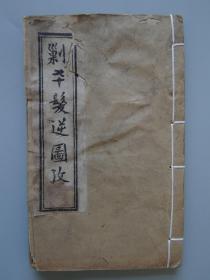 剿平髮逆圖攷